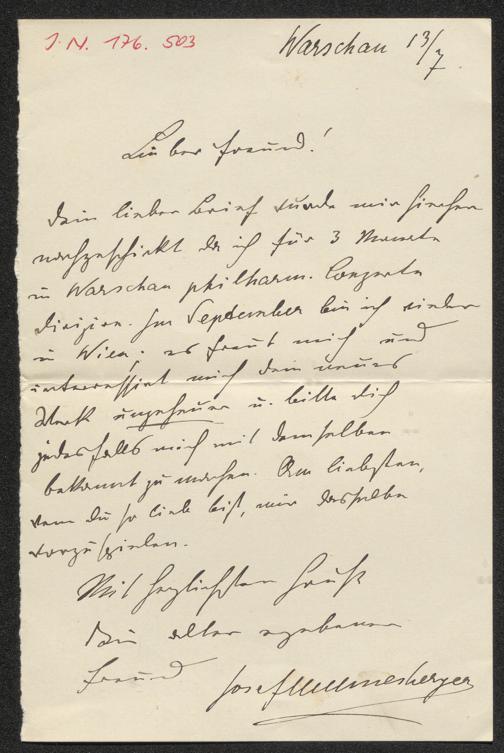 J. N. 176. 503
Warschau 13/7
Lieber Freund!
Dein lieber Brief wurde mir hierher
nachgeschickt da ich für 3 Monate
in Warschau philharm. Conzerte
dirigire. Im September bin ich wieder
in Wien; es freut mich und
interressirt mich dein neues
Werk ungeheuer u. bitte dich
jedesfalls mich mit demselben
bekannt zu machen. Am liebsten,
wenn du so lieb bist, mir dasselbe
vorzuspielen.
Mit herzlichsten Gruß
Dein alter ergebener
Freund
Josef Hellmesberger